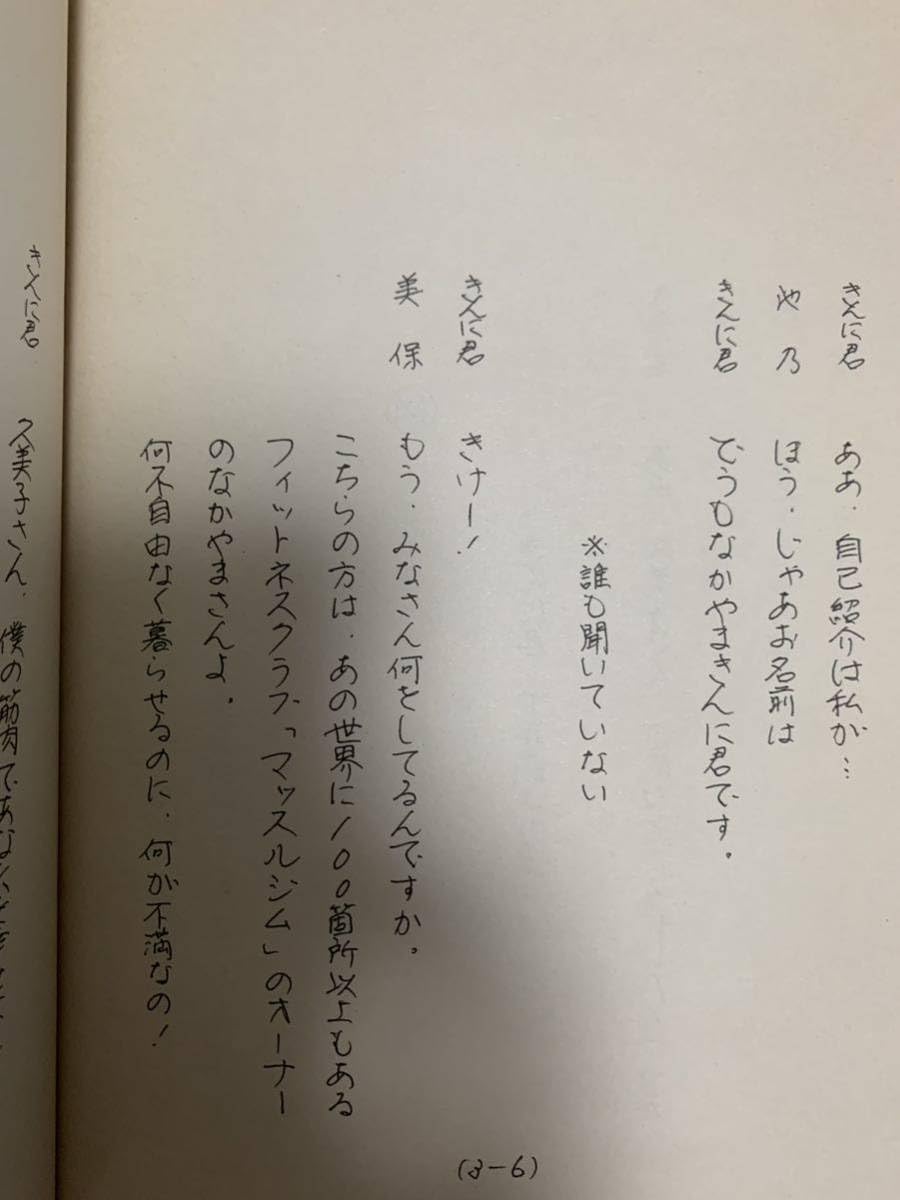 きんに君 ああ、自己紹介は私が…
池乃 ほう、じゃあお名前は
きんに君 でうもなかやまきんに君です。
※誰も聞いていない
きんに君 きけー!
美保 もう、みなさん何をしてるんですか。
こちらの方は、あの世界に100箇所以上もある
フィットネスクラブ「マッスルジム」のオーナー
のなかやまさんよ。
何不自由なく暮らせるのに、何が不満なの!
きんに君 久美子さん、僕の筋肉であなた
(3-6)